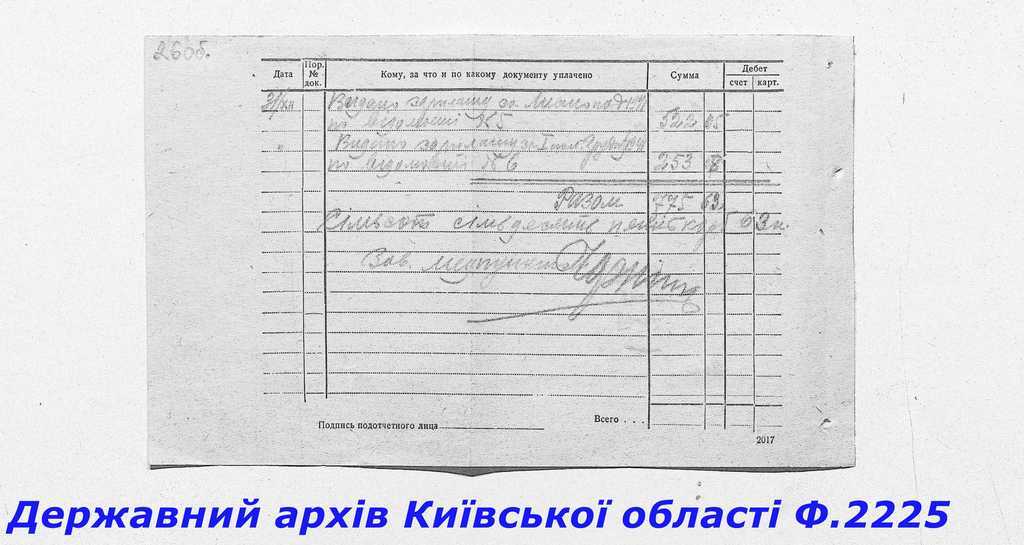 260б.
Дата Пор. № док. Кому, за что и по какому документу уплачено Сумма Дебет
счет карт.
31/XII Видано зарплату за Листопад
по відомості №5 522 05
" Видано зарплату за I пол.
по відомості №6 253 58
Разом 775 63
Сімсот сімдесять пять крб 63 к.
Зав. медпункт
Подпись подотчетного лица
Всего . . .
2017
Державний архів Київської області Ф.2225